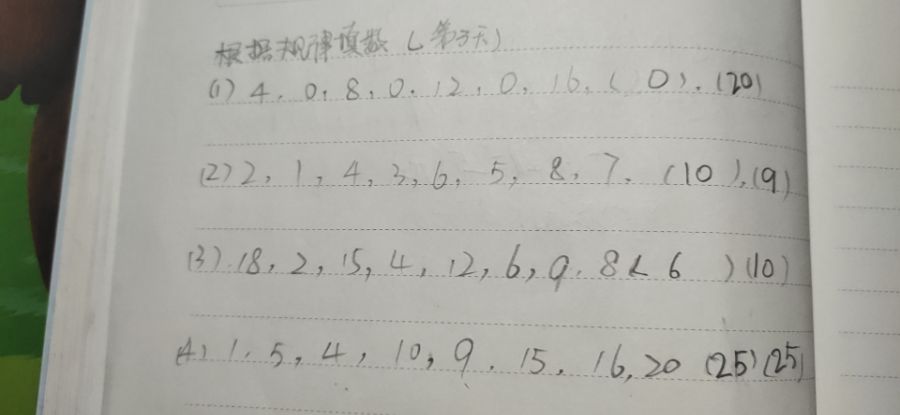 根据规律填数(第3天)
(1) 4, 0, 8, 0, 12, 0, 16, (0), (20)
(2) 2, 1, 4, 3, 6, 5, 8, 7, (10), (9)
(3) 18, 2, 15, 4, 12, 6, 9, 8 ( 6 ) (10)
(4) 1, 5, 4, 10, 9, 15, 16, 20 (25) (25)